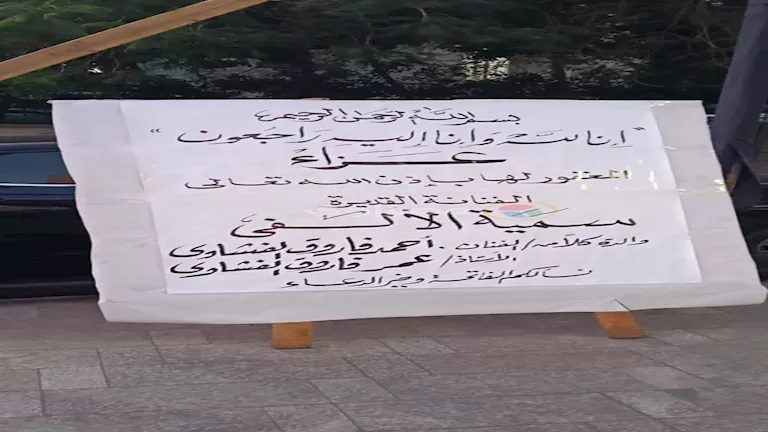 بسم الله الرحمن الرحيم
"إنا لله وإنا إليه راجعون"
عزاء
المغفور لها بإذن الله تعالى
الفنانة القديرة
سمية الألفى
والدة كلا من / الفنان. أحمد فاروق الفيشاوى
الأستاذ / عمر فاروق الفيشاوى
نسألكم الفاتحة وخير الدعاء